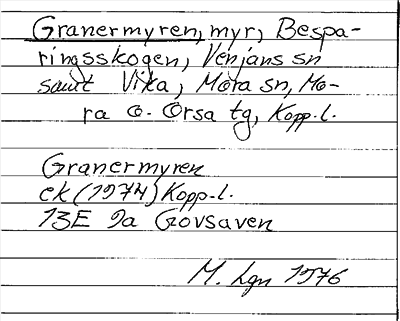 Granermyren, myr, Bespa-
ringsskogen, Venjans sn
samt Vika, Mora sn, Mo-
ra o. Orsa tg, Kopp.l.
Granermyren
ek (1974) Kopp.l.
13E 9a Gövsaven
M. Lgn 1976